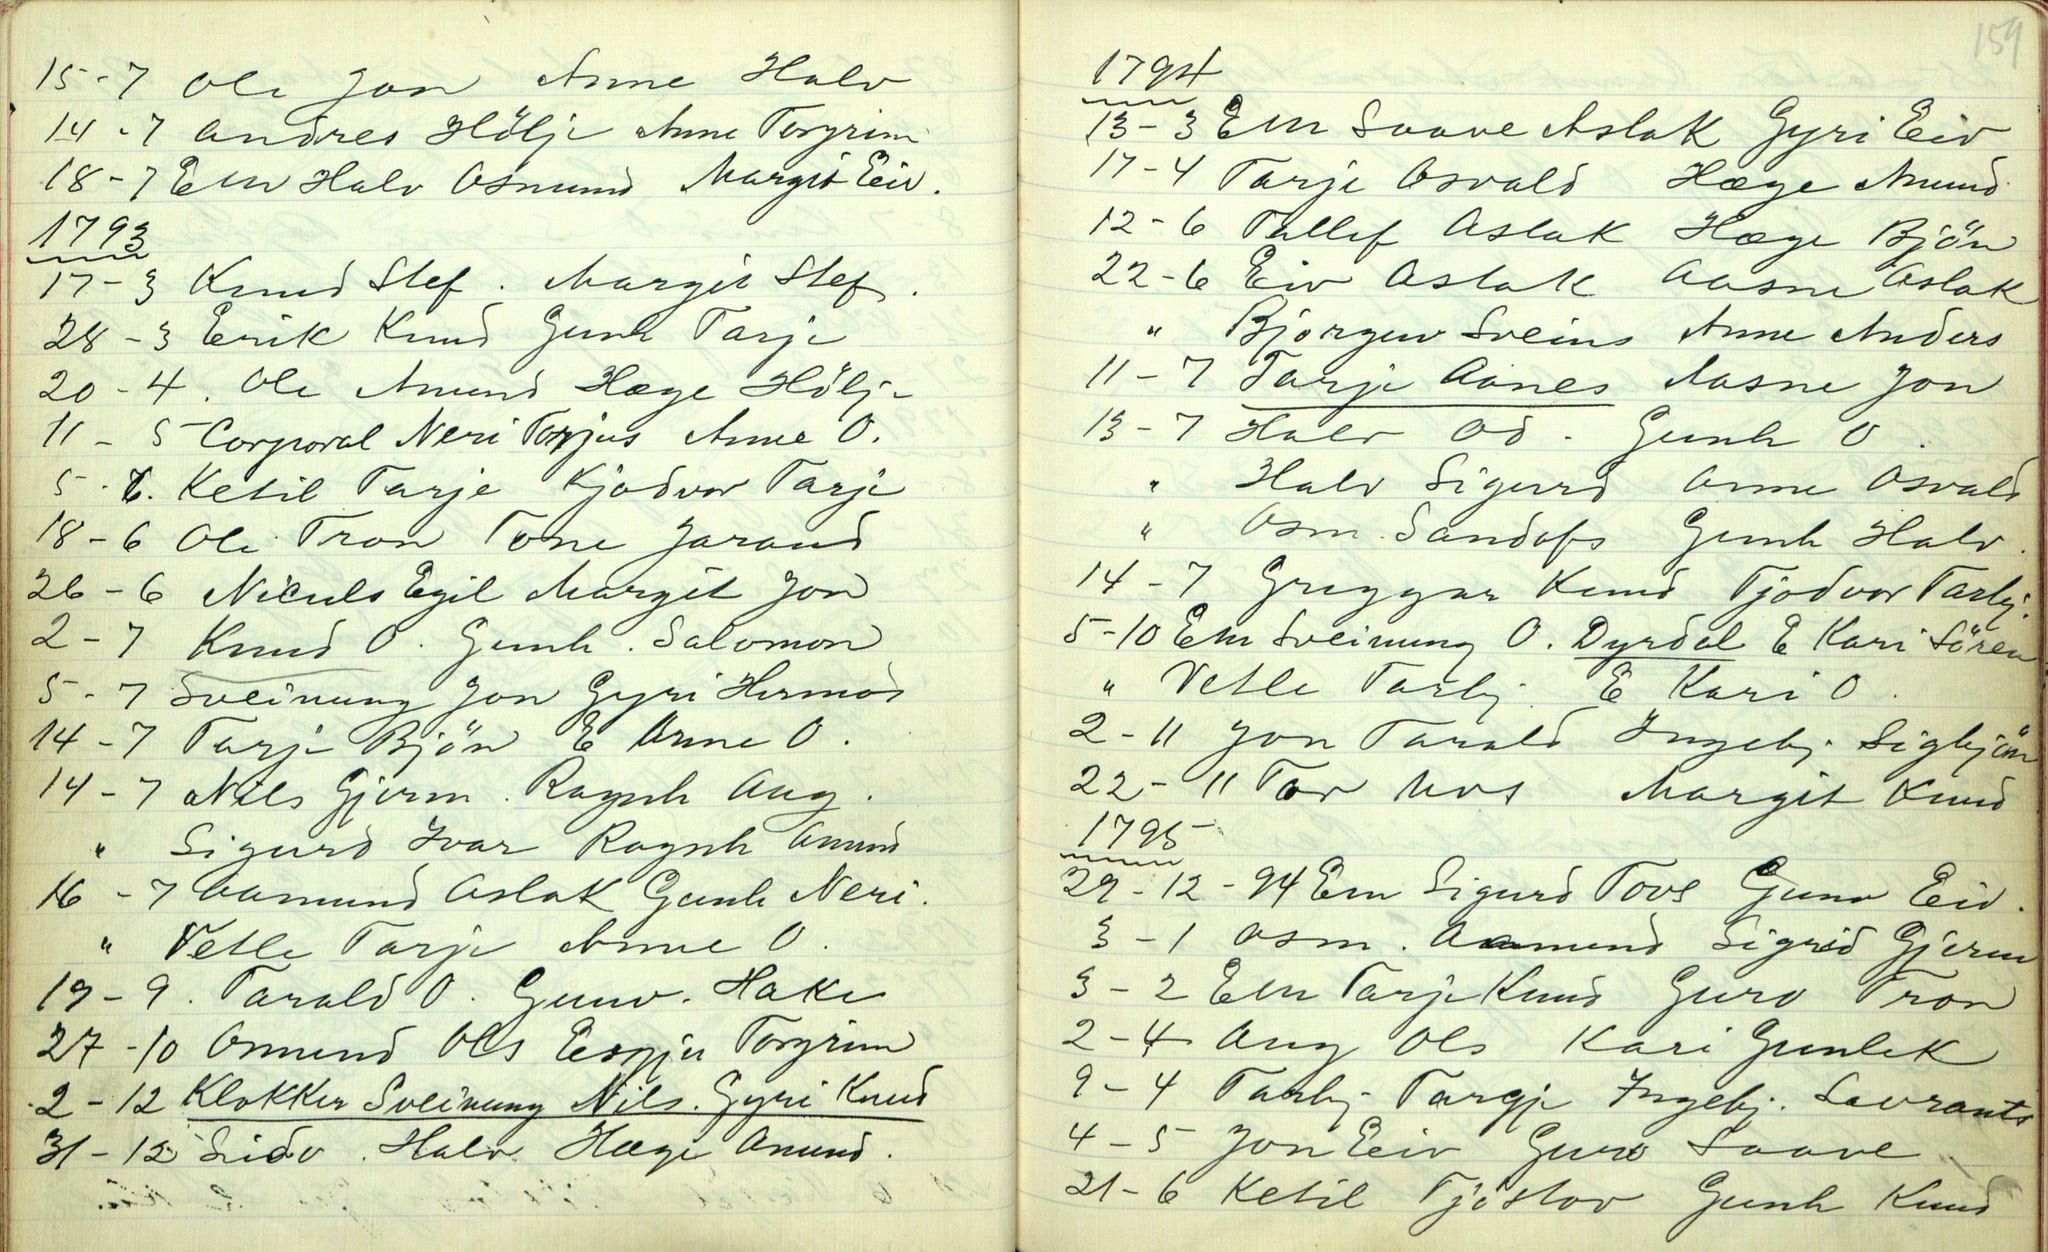 15-7 Ole Jon Anne Halv
14-7 Andres Hölje Anne Torgrim
18-7 Em Halv Osmund Margit Eiv.
1793
17-3 Knud Stef. Margit Stef.
28-3 Erik Knud Gunh Tarje
20-4. Ole Amund Hæge Hölje
11-5 Corporal Neri Torjus Anne O.
5-6. Ketil Tarje Kjodvor Tarje
18-6 Ole Tron Tone Jarand
26-6 Niculs Egil Margit Jon
2-7 Knud O. Gunh. Salomon
5-7 Sveinung Jon Gyri Hermod
14-7 Tarje Bjön E Anne O.
14-7 Nils Gjerm. Ragnh Aug.
" Sigurd Ivar Ragnh Amund
16-7 Aamund Aslak Gunh Neri.
" Vetle Tarje Anne O.
19-9. Tarald O. Gunv. Hake
27-10 Omund Ols Espju Torgrim
2-12 Klokker Sveinung Nils. Gyri Knud
31-12 Halv Hæge Omund.
159
1794
13-3 Em Saave Aslak Gyri Eiv
17-4 Tarje Osvald Hæge Amund
12-6 Tallef Aslak Hæge Bjön
22-6 Eiv Aslak Aasne Aslak
" Bjorguv Sveins Anne Anders
11-7 Tarje Aanes Aasne Jon
13-7 Halv Od. Gunh O.
" Halv Sigurd Anne Osvald
" Osm. Sandofs Gunh Halv.
14-7 Greggar Knud Tjodvor Tarbj.
5-10 Em Sveinung O. Dyrdal E Kari Sören
" Vetle Tarbj. E Kari O.
2-11 Jon Tarald Ingebj. Sigbjön
22-11 Tor Margit Knud
1795
29-12-94 Em Sigurd Tovs Gunv Eiv.
3-1 Osm. Aamund Sigrid Gjerm
3-2 Em Tarje Knud Guro Tron
2-4 Aug Ols Kari Gunlek
9-4 Tarbj. Targje Ingebj. Savrants
4-5 Jon Eiv Guro Saave
21-6 Ketil Tjöstov Gunh Knud